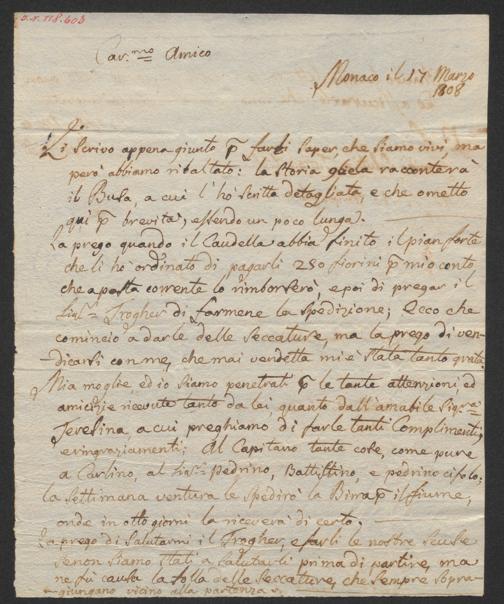 Car.mo Amico
Monaco il 17 Marzo
1808
Li scrivo appena giunto p farli saper che siamo vivi, ma
però abbiamo ribaltato: la storia gliela racconterà
il Busa, a cui l'hò scritta detagliata, e che ometto
qui p brevità, essendo un poco lunga.
La prego quando il Caudella abbia finito il pian forte
che li hò ordinato di pagarli 250 fiorini p mio conto
che a posta corrente lo rimborserò, e poi di pregar il
Sig.r Trogher di farmene la spedizione; Ecco che
comincio a darle delle seccature, ma la prego di ven-
dicarsi con me, che mai vendetta mi è stata tanto grata.
Mia moglie, ed io siamo penetrati p le tante attenzioni, ed
amicizie ricevute tanto da lei, quanto dall'amabile Sig.ra
Teresina, a cui preghiamo di farle tanti complimenti,
e ringraziamenti; Al Capitano tante cose, come pure
a Carlino, al Sig.r Pedrino, Battistino, e pedrino
la settimana ventura le spedirò la Birra p il fiume,
onde in otto giorni la riceverà di certo.
La prego di salutarmi il Trogher, e farli le nostre scuse
se non siamo stati a salutarli prima di partire, ma
ne fù causa la folla delle seccature, che sempre sopra-
giungano vicino alla partenza.